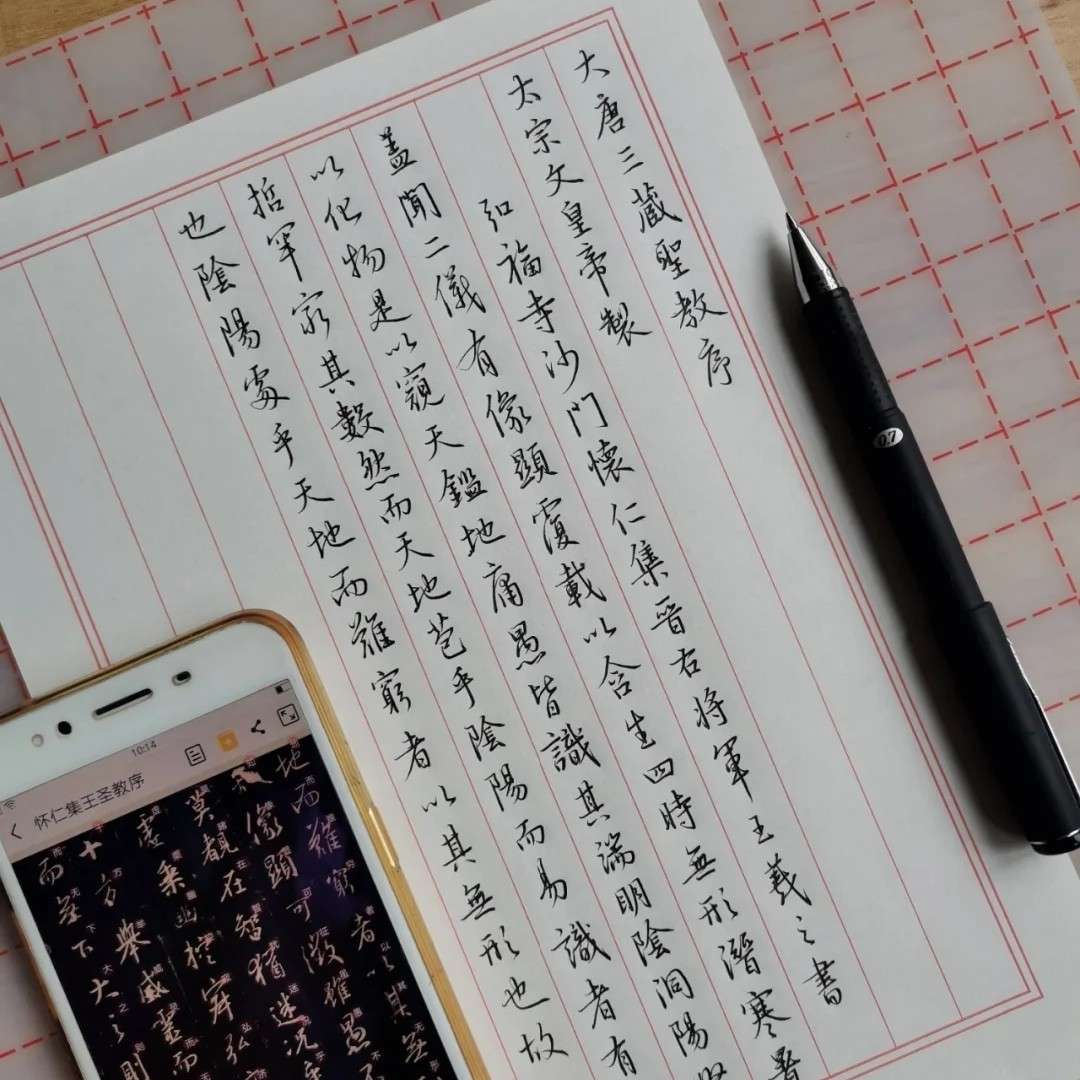 大唐三藏聖教序
太宗文皇帝製
弘福寺沙門懷仁集晉右將軍王羲之書
蓋聞二儀有像顯覆載以含生四時無形潛寒暑
以化物是以窺天鑑地庸愚皆識其端明陰洞陽賢
哲罕窮其數然而天地苞乎陰陽而易識者有
也陰陽處乎天地而難窮者以其無形也故
0.7
10:14
怀仁集王圣教序
地而難窮者以其無
像顯可徵雖愚不
莫覩在智猶迷況乎
虛乘幽控寂弘
十方舉威靈而
而無下大之則